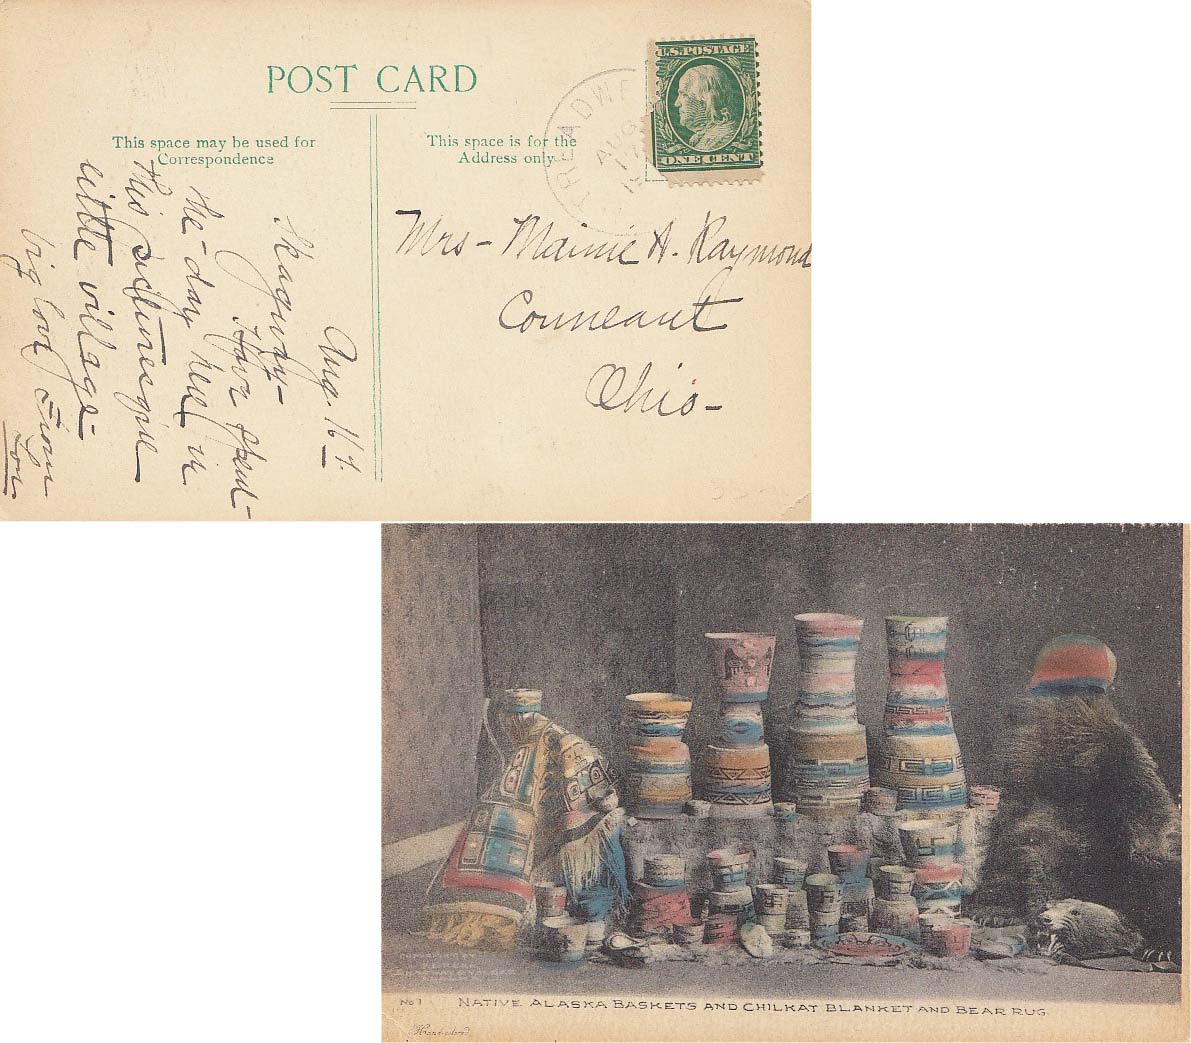 POST CARD
This space may be used for
Correspondence
This space is for the
Address only
TREADWE
AUG
17
U.S. POSTAGE
ONE CENT
Aug. 16th.
Skagway-
Have spent
the day here in
this picturesque
little village-
big love from
Lou
Mrs- Mamie A. Raymond
Conneaut
Ohio-
No 1 NATIVE ALASKA BASKETS AND CHILKAT BLANKET AND BEAR RUG
Hand-colored